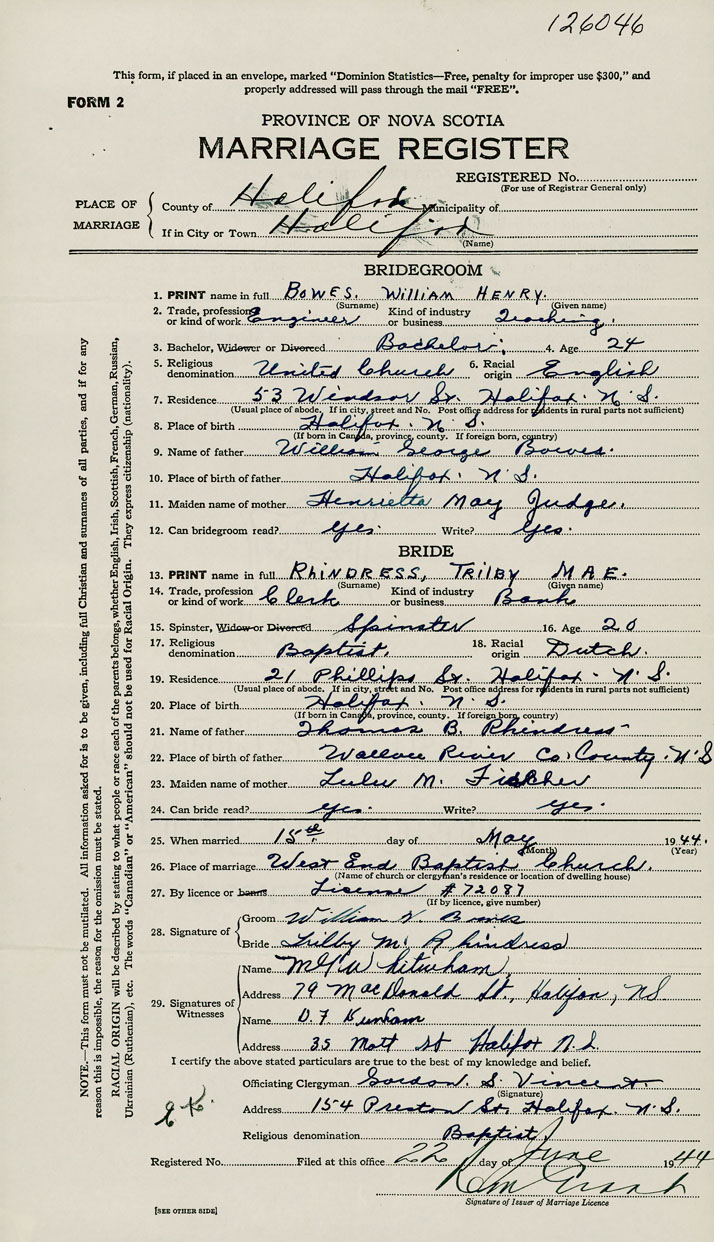 126046
This form, if placed in an envelope, marked "Dominion Statistics—Free, penalty for improper use $300," and
properly addressed will pass through the mail "FREE".
FORM 2
PROVINCE OF NOVA SCOTIA
MARRIAGE REGISTER
REGISTERED No.
(For use of Registrar General only)
PLACE OF MARRIAGE
County of Halifax Municipality of
If in City or Town Halifax
(Name)
BRIDEGROOM
1. PRINT name in full BOWES. WILLIAM HENRY.
(Surname) (Given name)
2. Trade, profession or kind of work Engineer Kind of industry or business Teaching.
3. Bachelor, Widower or Divorced Bachelor. 4. Age 24
5. Religious denomination United Church 6. Racial origin English
7. Residence 53 Windsor St. Halifax. N.S.
(Usual place of abode. If in city, street and No. Post office address for residents in rural parts not sufficient)
8. Place of birth Halifax. N.S.
(If born in Canada, province, county. If foreign born, country)
9. Name of father William George Bowes.
10. Place of birth of father Halifax. N.S.
11. Maiden name of mother Henrietta May Judge.
12. Can bridegroom read? Yes. Write? Yes.
BRIDE
13. PRINT name in full RHINDRESS, TRILBY MAE.
(Surname) (Given name)
14. Trade, profession or kind of work Clerk Kind of industry or business Bank
15. Spinster, Widow or Divorced Spinster 16. Age 20
17. Religious denomination Baptist. 18. Racial origin Dutch.
19. Residence 21 Phillips St. Halifax. N.S.
(Usual place of abode. If in city, street and No. Post office address for residents in rural parts not sufficient)
20. Place of birth Halifax. N.S.
(If born in Canada, province, county. If foreign born, country)
21. Name of father Thomas B. Rhindress
22. Place of birth of father Wallace River Co. County. N.S
23. Maiden name of mother Lulu M. Fischer
24. Can bride read? Yes. Write? Yes.
25. When married 15th day of May 1944.
(Month) (Year)
26. Place of marriage West End Baptist Church.
(Name of church or clergyman's residence or location of dwelling house)
27. By licence or banns License #72087
(If by licence, give number)
28. Signature of
Groom William H Bowes
Bride Trilby M. Rhindress
29. Signatures of Witnesses
Name
Address 79 MacDonald St., Halifax, NS
Name D. F.
Address 35 Mott St Halifax N.S.
I certify the above stated particulars are true to the best of my knowledge and belief.
Officiating Clergyman Gordon. S. Vincent
(Signature)
Address 154 Preston St. Halifax. N.S.
Religious denomination Baptist
Registered No. Filed at this office 22 day of June 1944
Signature of Issuer of Marriage Licence
[SEE OTHER SIDE]
NOTE.—This form must not be mutilated. All information asked for is to be given, including full Christian and surnames of all parties, and if for any
reason this is impossible, the reason for the omission must be stated.
RACIAL ORIGIN will be described by stating to what people or race each of the parents belongs, whether English, Irish, Scottish, French, German, Russian,
Ukrainian (Ruthenian), etc. The words "Canadian" or "American" should not be used for Racial Origin. They express citizenship (nationality).